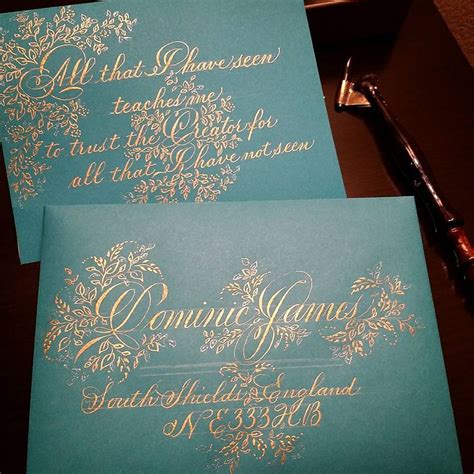 All that I have seen
teaches me
to trust the Creator for
all that I have not seen
Dominic James
South Shields, England
NE333HB